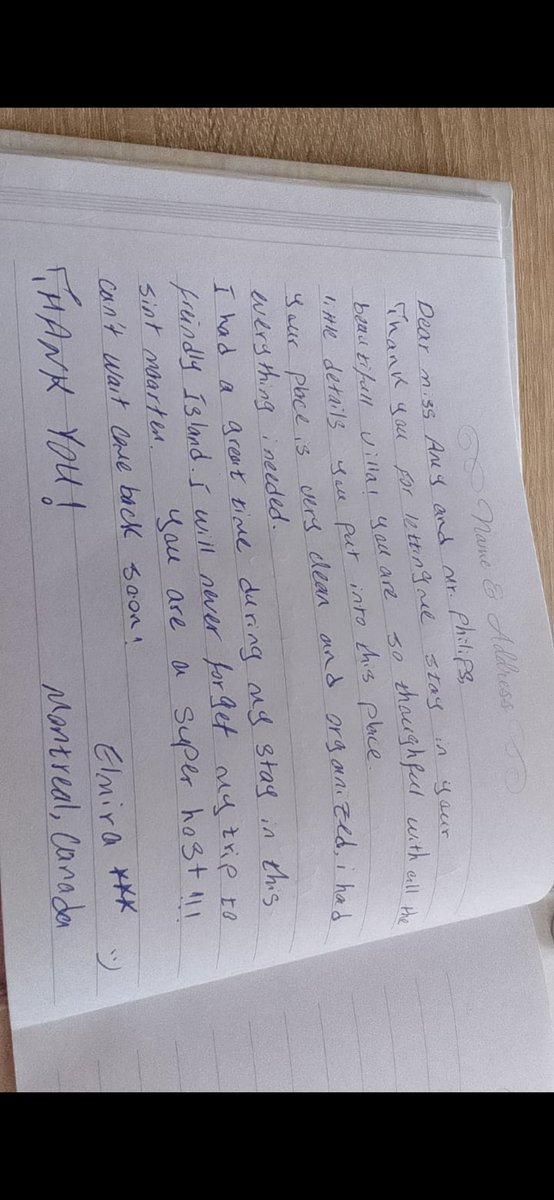 Name & Address
Dear miss Any and Mr. Philips,
Thank you for letting me stay in your
beautifull villa! you are so thoughfull with all the
little details you put into this place.
your place is very clean and organized, i had
everything i needed.
I had a great time during my stay in this
freindly Island. I will never forget my trip to
sint maarten. you are a super host!!!
can't wait come back soon!
Elnira *** :)
THANK YOU! Montreal, Canada